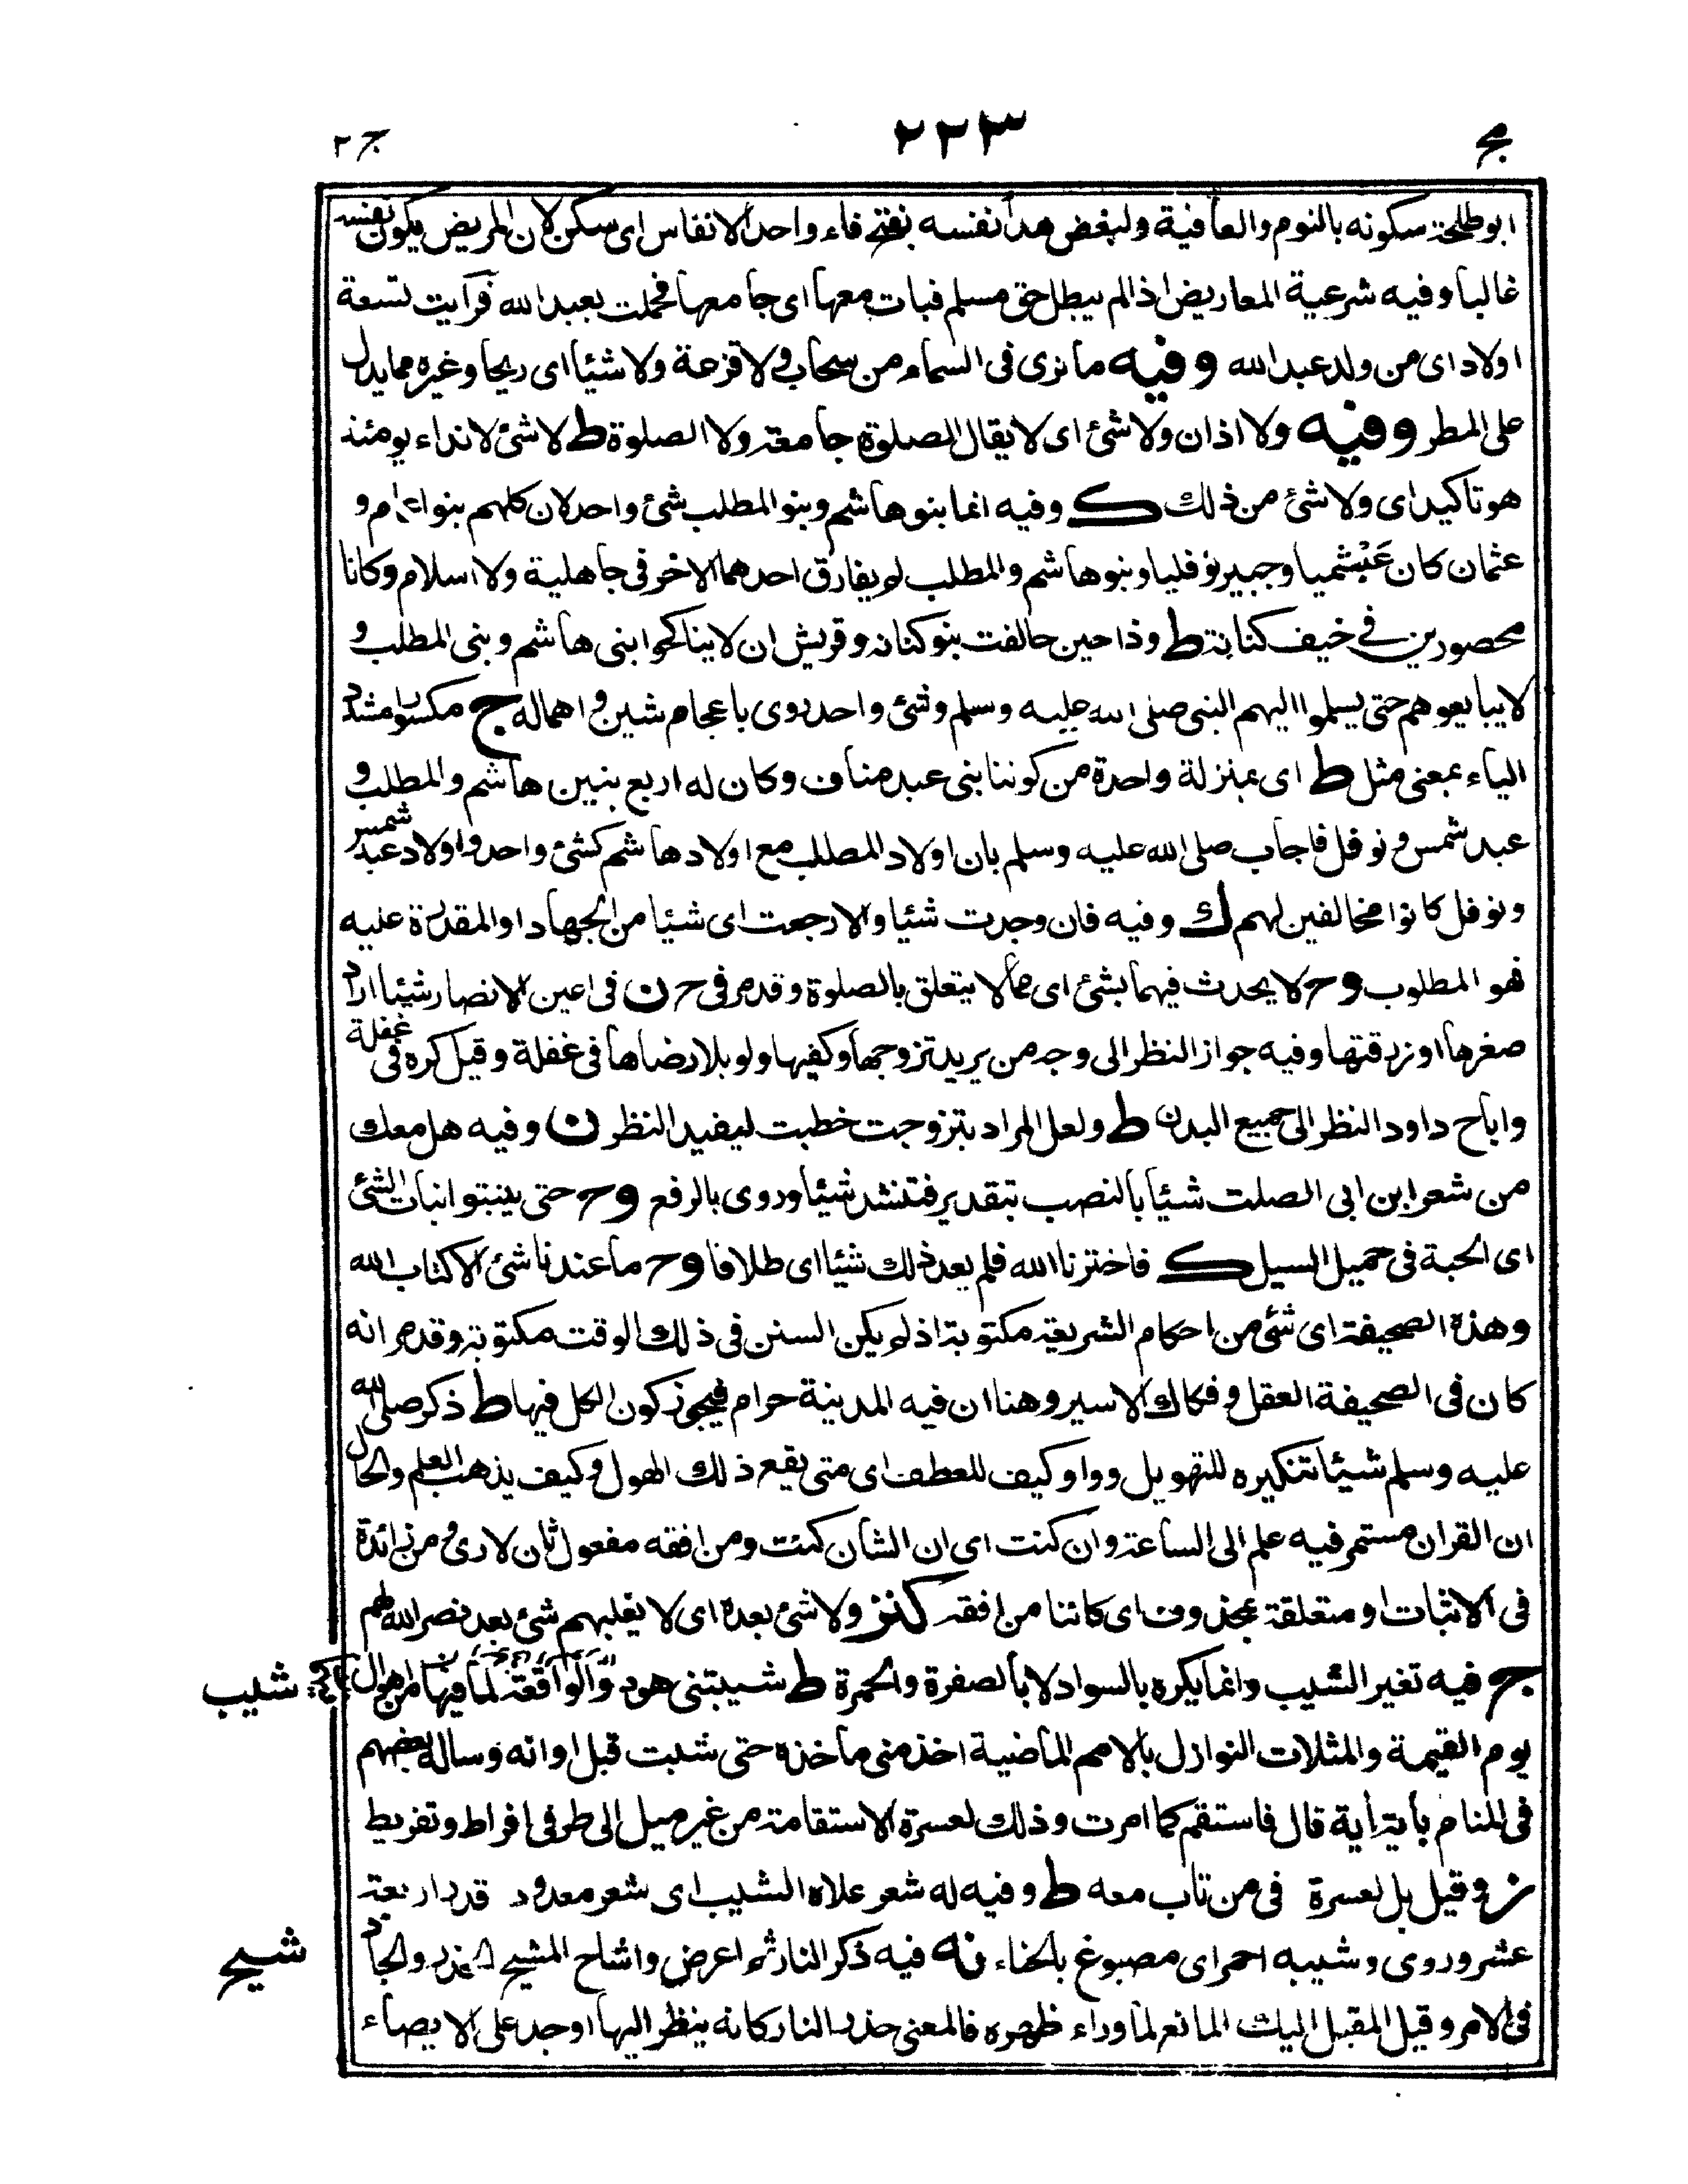 مج ٢٣٣ ج ٢
ابو طلحة سكونه بالنوم والعافية ولبعض هدأ نفسه بفتح فاء واحد الانفاس اى سكن لان المريض يكون نفسه
غالبا وفيه شرعية المعاريض اذا لم يبطل حق مسلم فبات معها اى جامعها فحملت بعبد الله فرايت تسعة
اولاد اى من ولد عبد الله وفيه ما نرى فى السماء من سحاب ولا قزعة ولا شيئا اى ريحا وغيره مما يدل
على المطر وفيه ولا اذان ولا شئ اى لا يقال الصلوة جامعة ولا الصلوة ط لا شئ لا نداء يومئذ
هو تاكيد اى ولا شئ من ذلك ك وفيه انما بنو هاشم وبنو المطلب شئ واحد لان كلهم بنو اعمام و
عثمان كان عَبْشَميا وجبير نوفليا وبنو هاشم والمطلب لم يفارق احدهما الاخر فى جاهلية ولا اسلام وكانا
محصورين فى خيف كنانة ط وذا حين حالفت بنو كنانة وقريش ان لا يناكحوا بنى هاشم وبنى المطلب و
لا يبايعوهم حتى يسلموا اليهم النبى صلى الله عليه وسلم وشئ واحد روى باعجام شين واهماله ج مكسورا مشدد
الياء بمعنى مثل ط اى بمنزلة واحدة من كوننا بنى عبد مناف وكان له اربع بنين هاشم والمطلب و
عبد شمس ونوفل فاجاب صلى الله عليه وسلم بان اولاد المطلب مع اولاد هاشم كشئ واحد واولاد عبد شمس
ونوفل كانوا مخالفين لهم ك وفيه فان وجدت شيئا والا رجعت اى شيئا من الجهاد او المقدرة عليه
فهو المطلوب وح لا يحدث فيهما بشئ اى مما لا يتعلق بالصلوة وقد مر فى ح ن فى اعين الانصار شيئا اراد
صغرها او زرقتها وفيه جواز النظر الى وجه من يريد تزوجها وكفيها ولو بلا رضاها فى غفلة وقيل كره فى غفلة
واباح داود النظر الى جميع البدن ط ولعل المراد بتزوجت خطبت ليفيد النظر ن وفيه هل معك
من شعر ابن ابى الصلت شيئا بالنصب بتقدير فتنشد شيئا وروى بالرفع وح حتى ينبتوا نبات الشئ
اى الحبة فى حميل السيل ك فاخترنا الله فلم يعد ذلك شيئا اى طلاقا وح ما عندنا شئ الا كتاب الله
وهذه الصحيفة اى شئ من احكام الشريعة مكتوبة اذ لم يكن السنن فى ذلك الوقت مكتوبة وقد مر انه
كان فى الصحيفة العقل وفكاك الاسير وهنا ان فيه المدينة حرام فيجوز كون الكل فيها ط ذكر صلى الله
عليه وسلم شيئا تنكيره للتهويل وواو كيف للعطف اى متى يقع ذلك الهول وكيف يذهب العلم والحال
ان القران مستمر فيه علم الى الساعة وان كنت اى ان الشان كنت ومن افقه مفعول ثان لارى ومن زائدة
فى الاثبات او متعلقة بمحذوف اى كائنا من افقه كنز ولا شئ بعده اى لا يغلبهم شئ بعد نصر الله لهم
ج فيه تغير الشيب وانما يكره بالسواد لا بالصفرة والحمرة ط شيبتنى هود والواقعة لما فيها من اهوال
شيب
يوم القيمة والمثلات النوازل بالامم الماضية اخذ منى ماخذه حتى شبت قبل اوانه وساله بعضهم
فى المنام باية أية قال فاستقم كما امرت وذلك لعسرة الاستقامة من غير ميل الى طرفى افراط وتفريط
ز وقيل بل لعسرة فى من تاب معه ط وفيه له شعر علاه الشيب اى شعر معدود قدر اربعة
عشر وروى وشيبه احمر اى مصبوغ بالحناء نه فيه ذكر النار ثم اعرض واشاح المشيح الحذر والجاد
شيح
فى الامر وقيل المقبل اليك المانع لما وراء ظهره فالمعنى حذر النار كانه ينظر اليها او جد على الايصاء